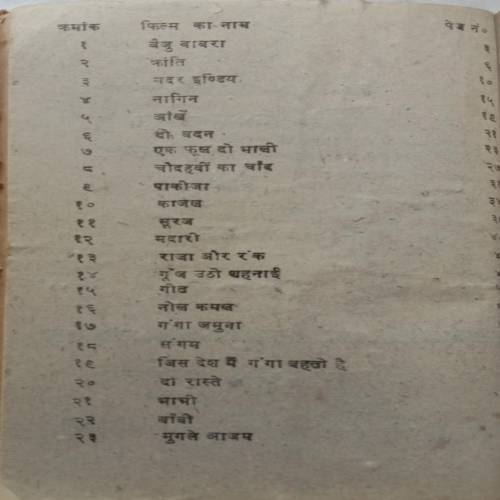 क्रमांक फिल्म का नाम पेज नं०
१ बैजु बावरा
२ क्रांति ६
३ मदर इण्डिय १०
४ नागिन १५
५ आंखें १९
६ दो बदन २१
७ एक फूल दो माली २३
८ चौदहवीं का चाँद २७
९ पाकीजा
१० काजल
११ सूरज
१२ मदारी
१३ राजा और रंक
१४ गूँज उठी शहनाई
१५ गीत
१६ नील कमल
१७ गंगा जमुना
१८ संगम
१९ जिस देश में गंगा बहती है
२० दो रास्ते
२१ भाभी
२२ बॉबी
२३ मुगले आजम